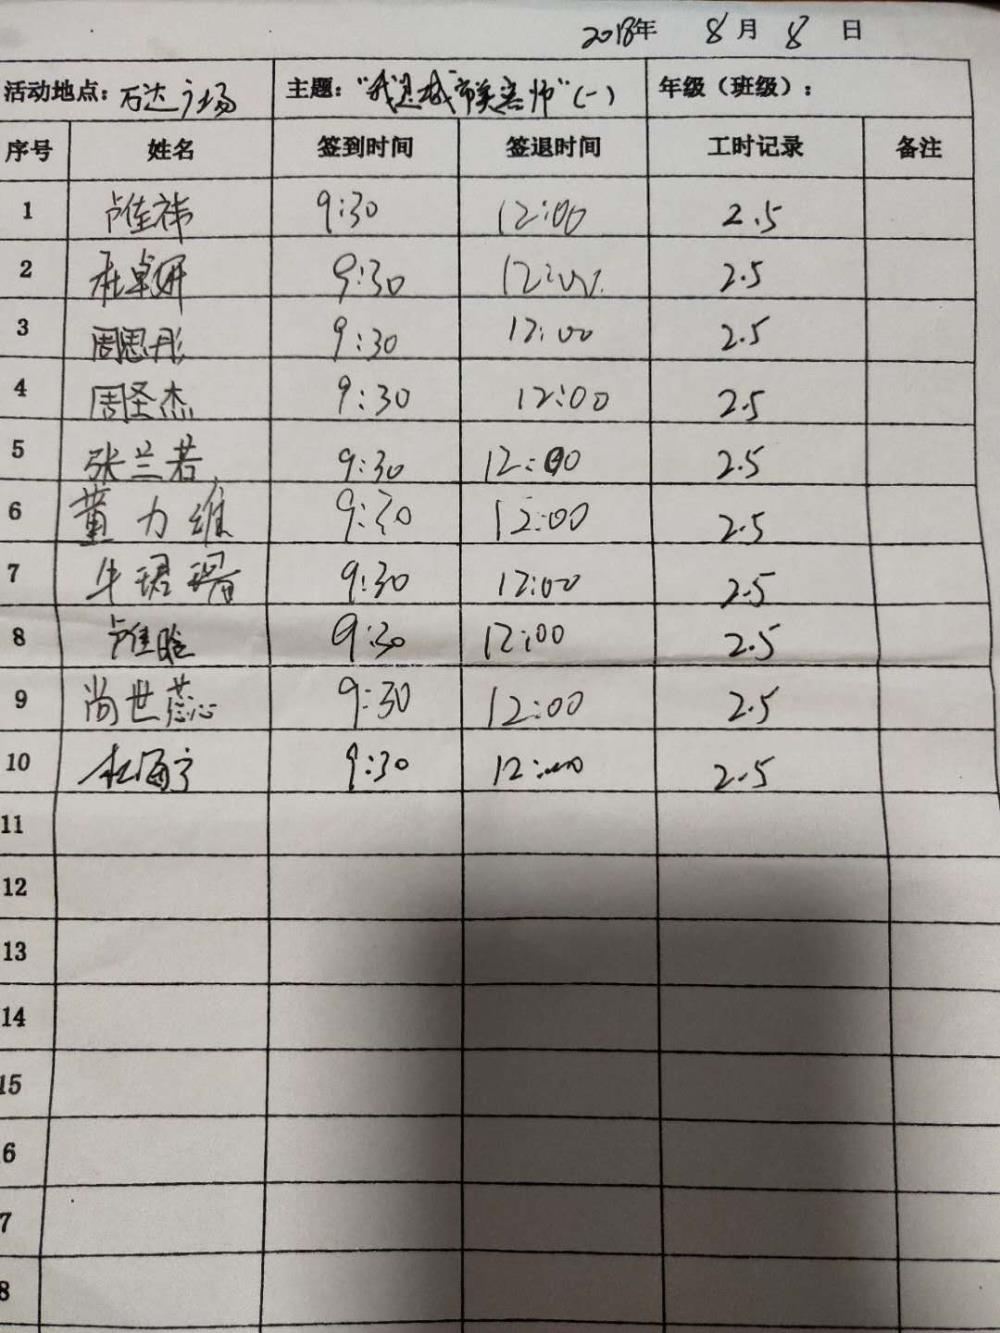 2018年 8月 8日
活动地点：万达广场 主题："我是城市美容师"(一) 年级（班级）：
序号 姓名 签到时间 签退时间 工时记录 备注
1 卢佳祎 9:30 12:00 2.5
2 杜卓妍 9:30 12:00 2.5
3 周思彤 9:30 12:00 2.5
4 周圣杰 9:30 12:00 2.5
5 张兰若 9:30 12:00 2.5
6 董力维 9:30 12:00 2.5
7 牛珺瑶 9:30 12:00 2.5
8 9:30 12:00 2.5
9 尚世蕊 9:30 12:00 2.5
10 杜海宁 9:30 12:00 2.5
11
12
13
14
15
6
7
8